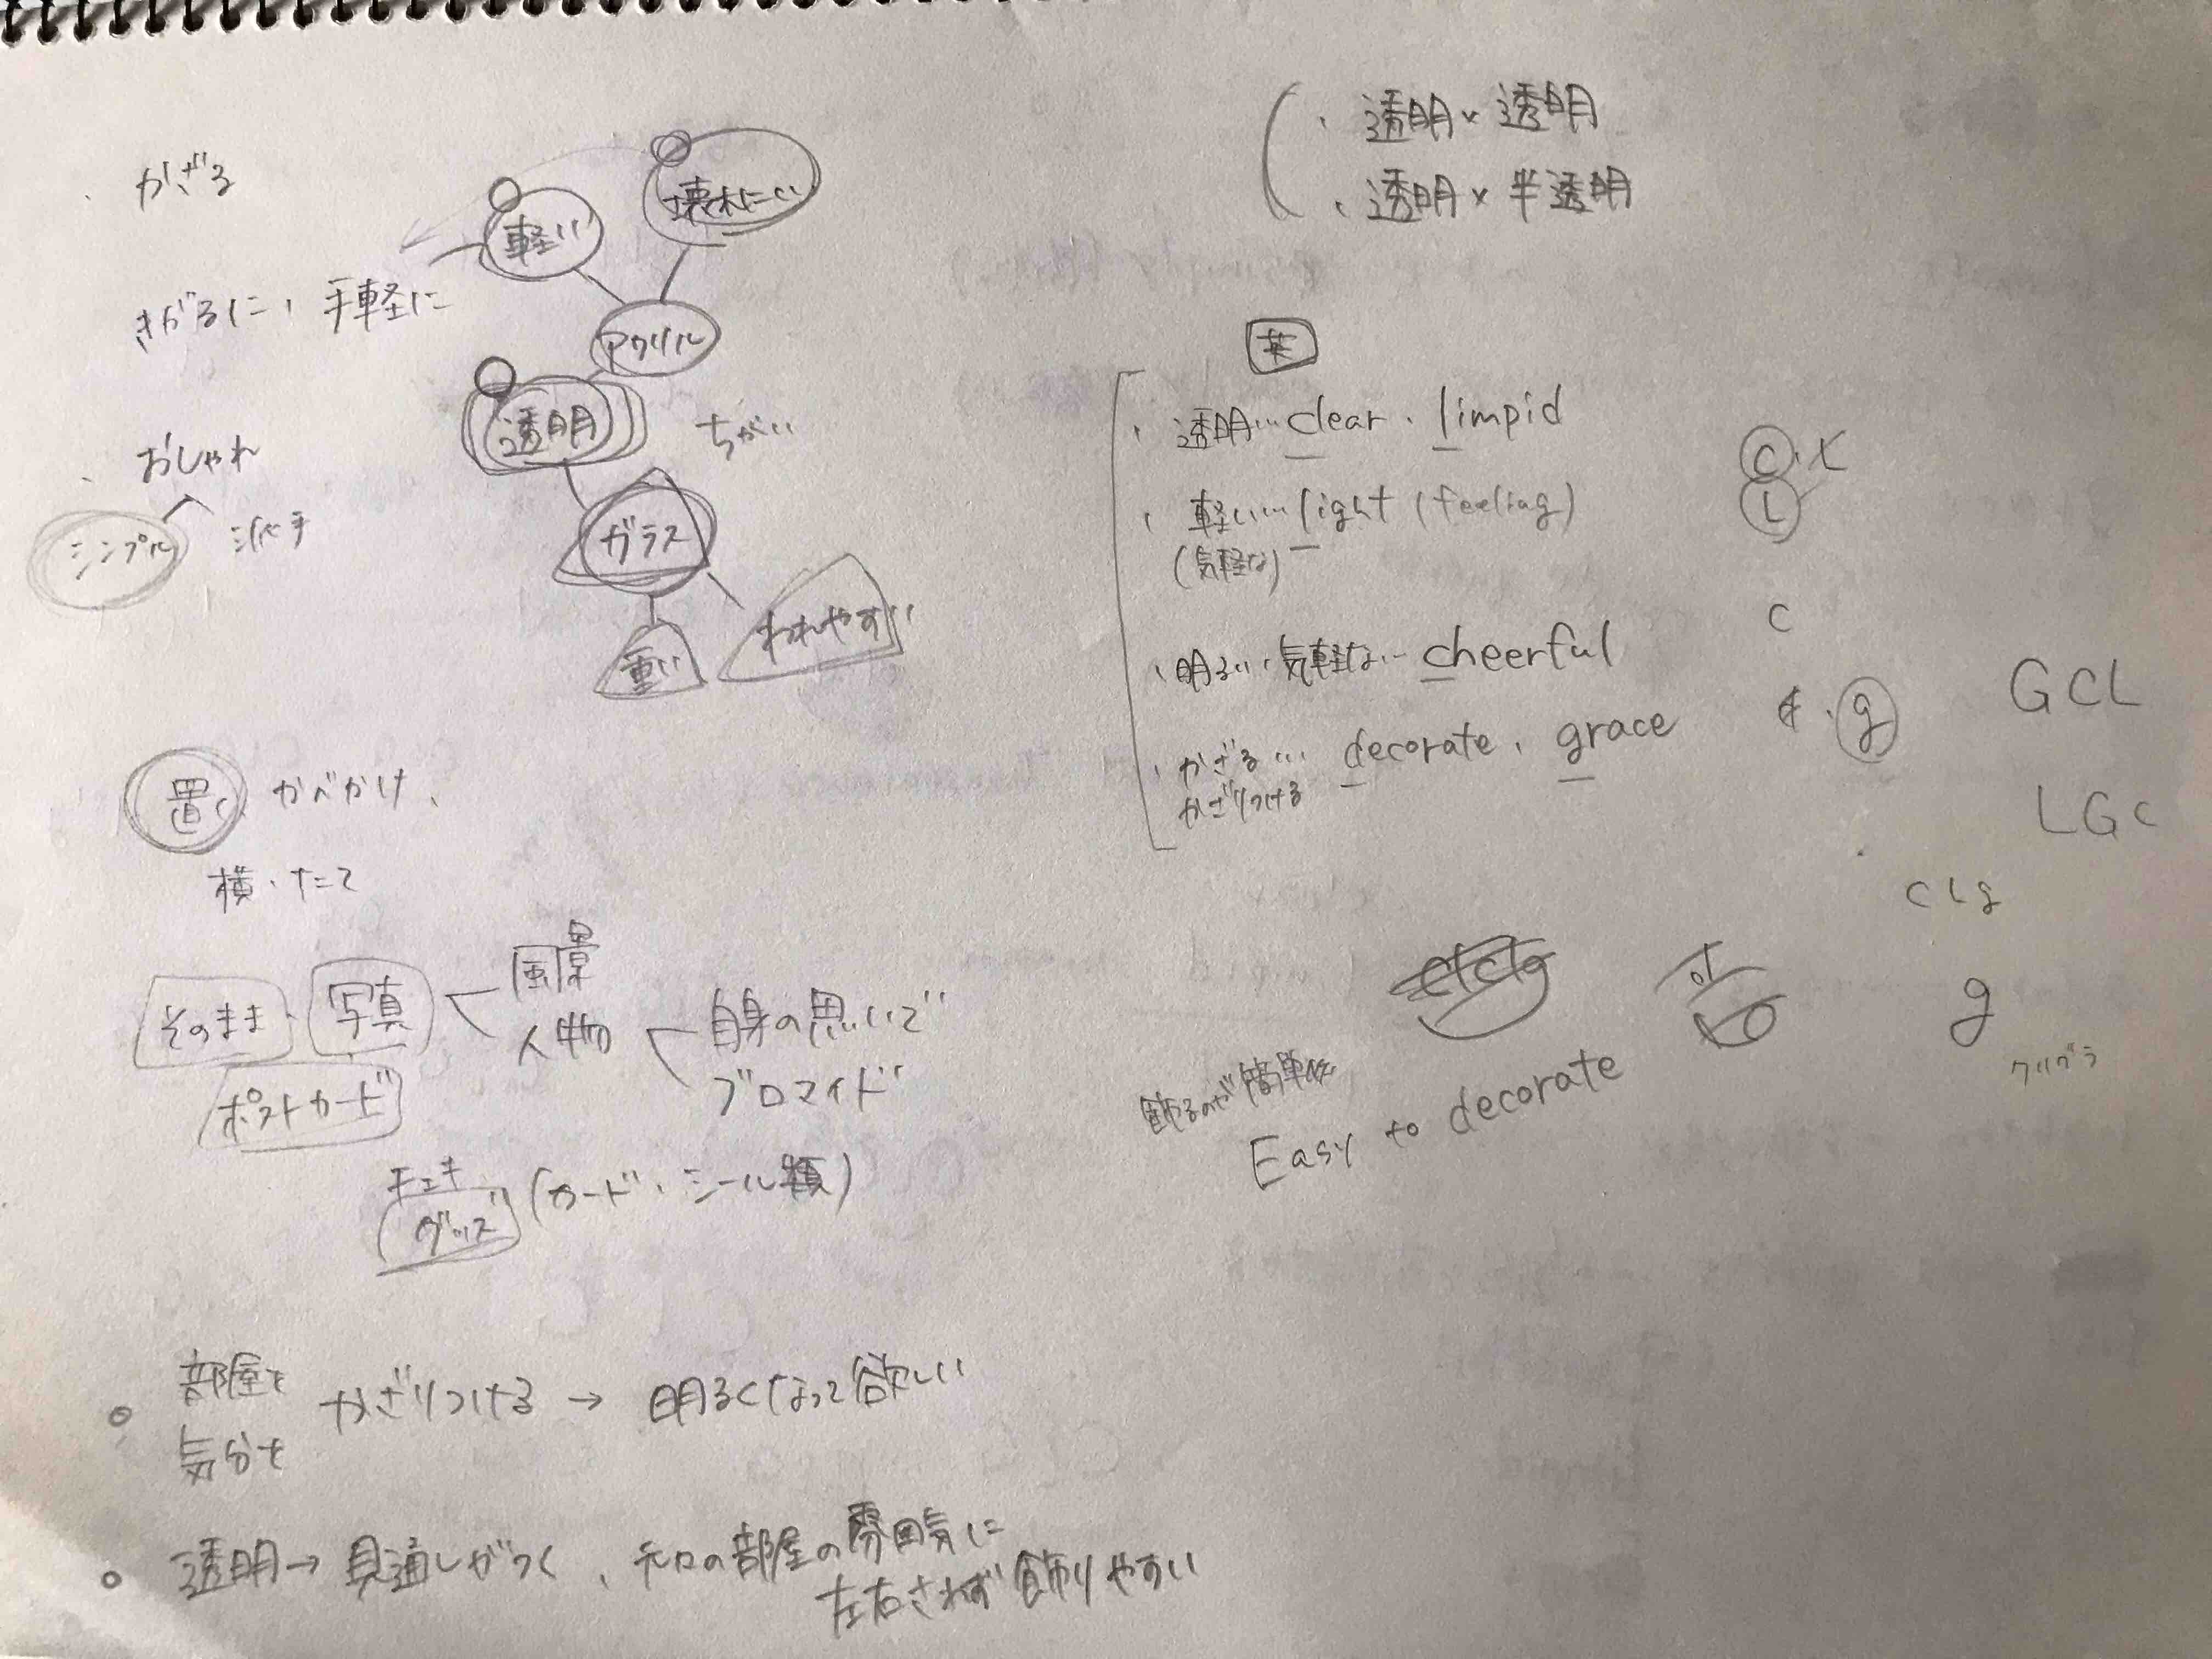 ・かざる
きがるに、手軽に
軽い
壊れにくい
アクリル
透明
ちがい
ガラス
重い
われやすい
・おしゃれ
シンプル 派手
置く かべかけ、
横・たて
そのまま 写真
ポストカード
風景
人物
自身の思いで
ブロマイド
チェキ
グッズ (カード・シール類)
部屋を
気分を かざりつける → 明るくなって欲しい
透明→見通しがつく、元の部屋の雰囲気に
左右されず飾りやすい
・透明×透明
・透明×半透明
英
・透明… clear . limpid
・軽い… light (feeling)
(気軽な)
・明るい、気軽な… cheerful
・かざる… decorate , grace
かざりつける
C
L
C
g
GCL
LGC
CLg
g
クリグラ
飾るのが簡単な
Easy to decorate